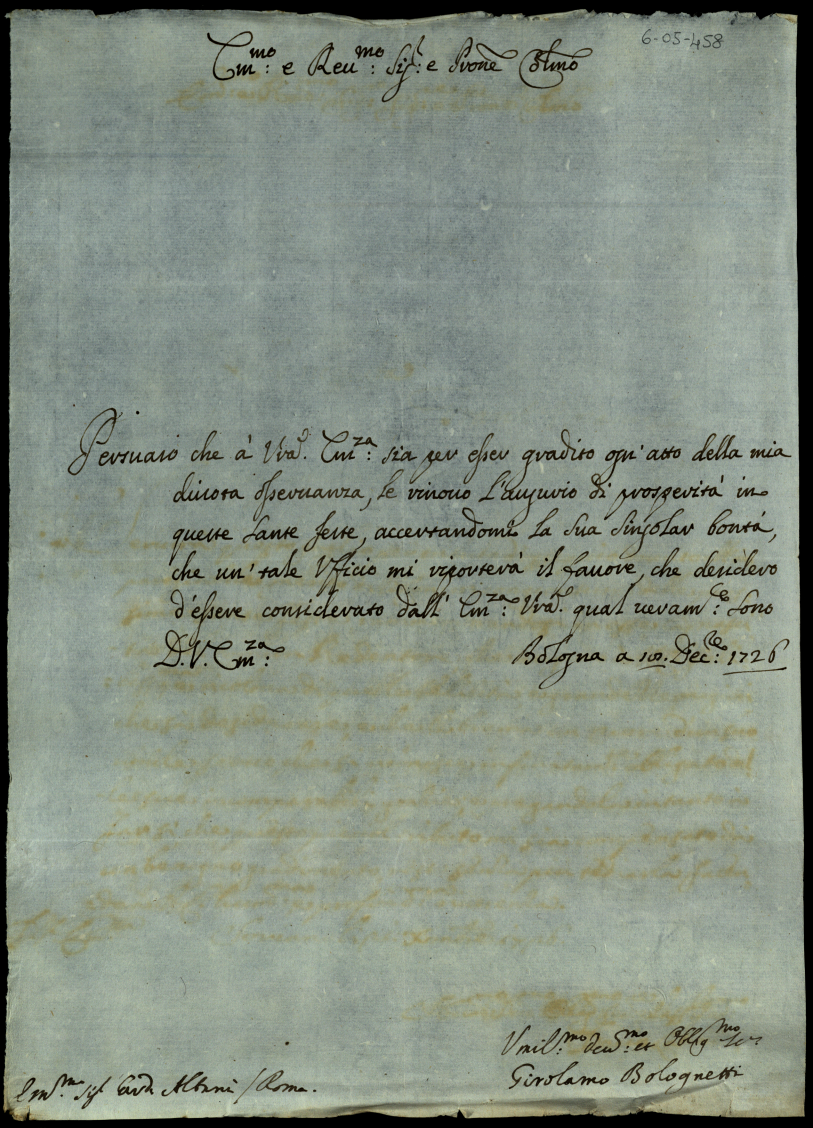 6-05-458
Em.mo: e Reu.mo: Sig.r: e Prone Colmo
Persuaso che à Vra. Em.za: sia per esser gradito ogn'atto della mia
diuota osseruanza, le rinouo l'augurio di prosperità in
queste Sante feste, accertandomi la sua singolar bontà,
che un'tale Vfficio mi riporterà il fauore, che desidero
d'essere considerato dall' Em.za: Vra. qual ueram.te: sono
D. V. Em.za:
Bologna a Dec.re: 1726
Vmil.mo: deu.mo: et Obblig.mo Ser.
Girolamo Bolognetti
Em.mo Sig.r Card. Albani / Roma.